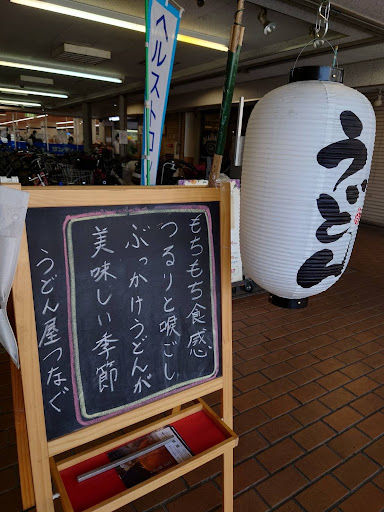 もちもち食感
つるりと喉ごし
ぶっかけうどんが
美味しい季節
うどん屋つなぐ
うどん
ヘルストロ